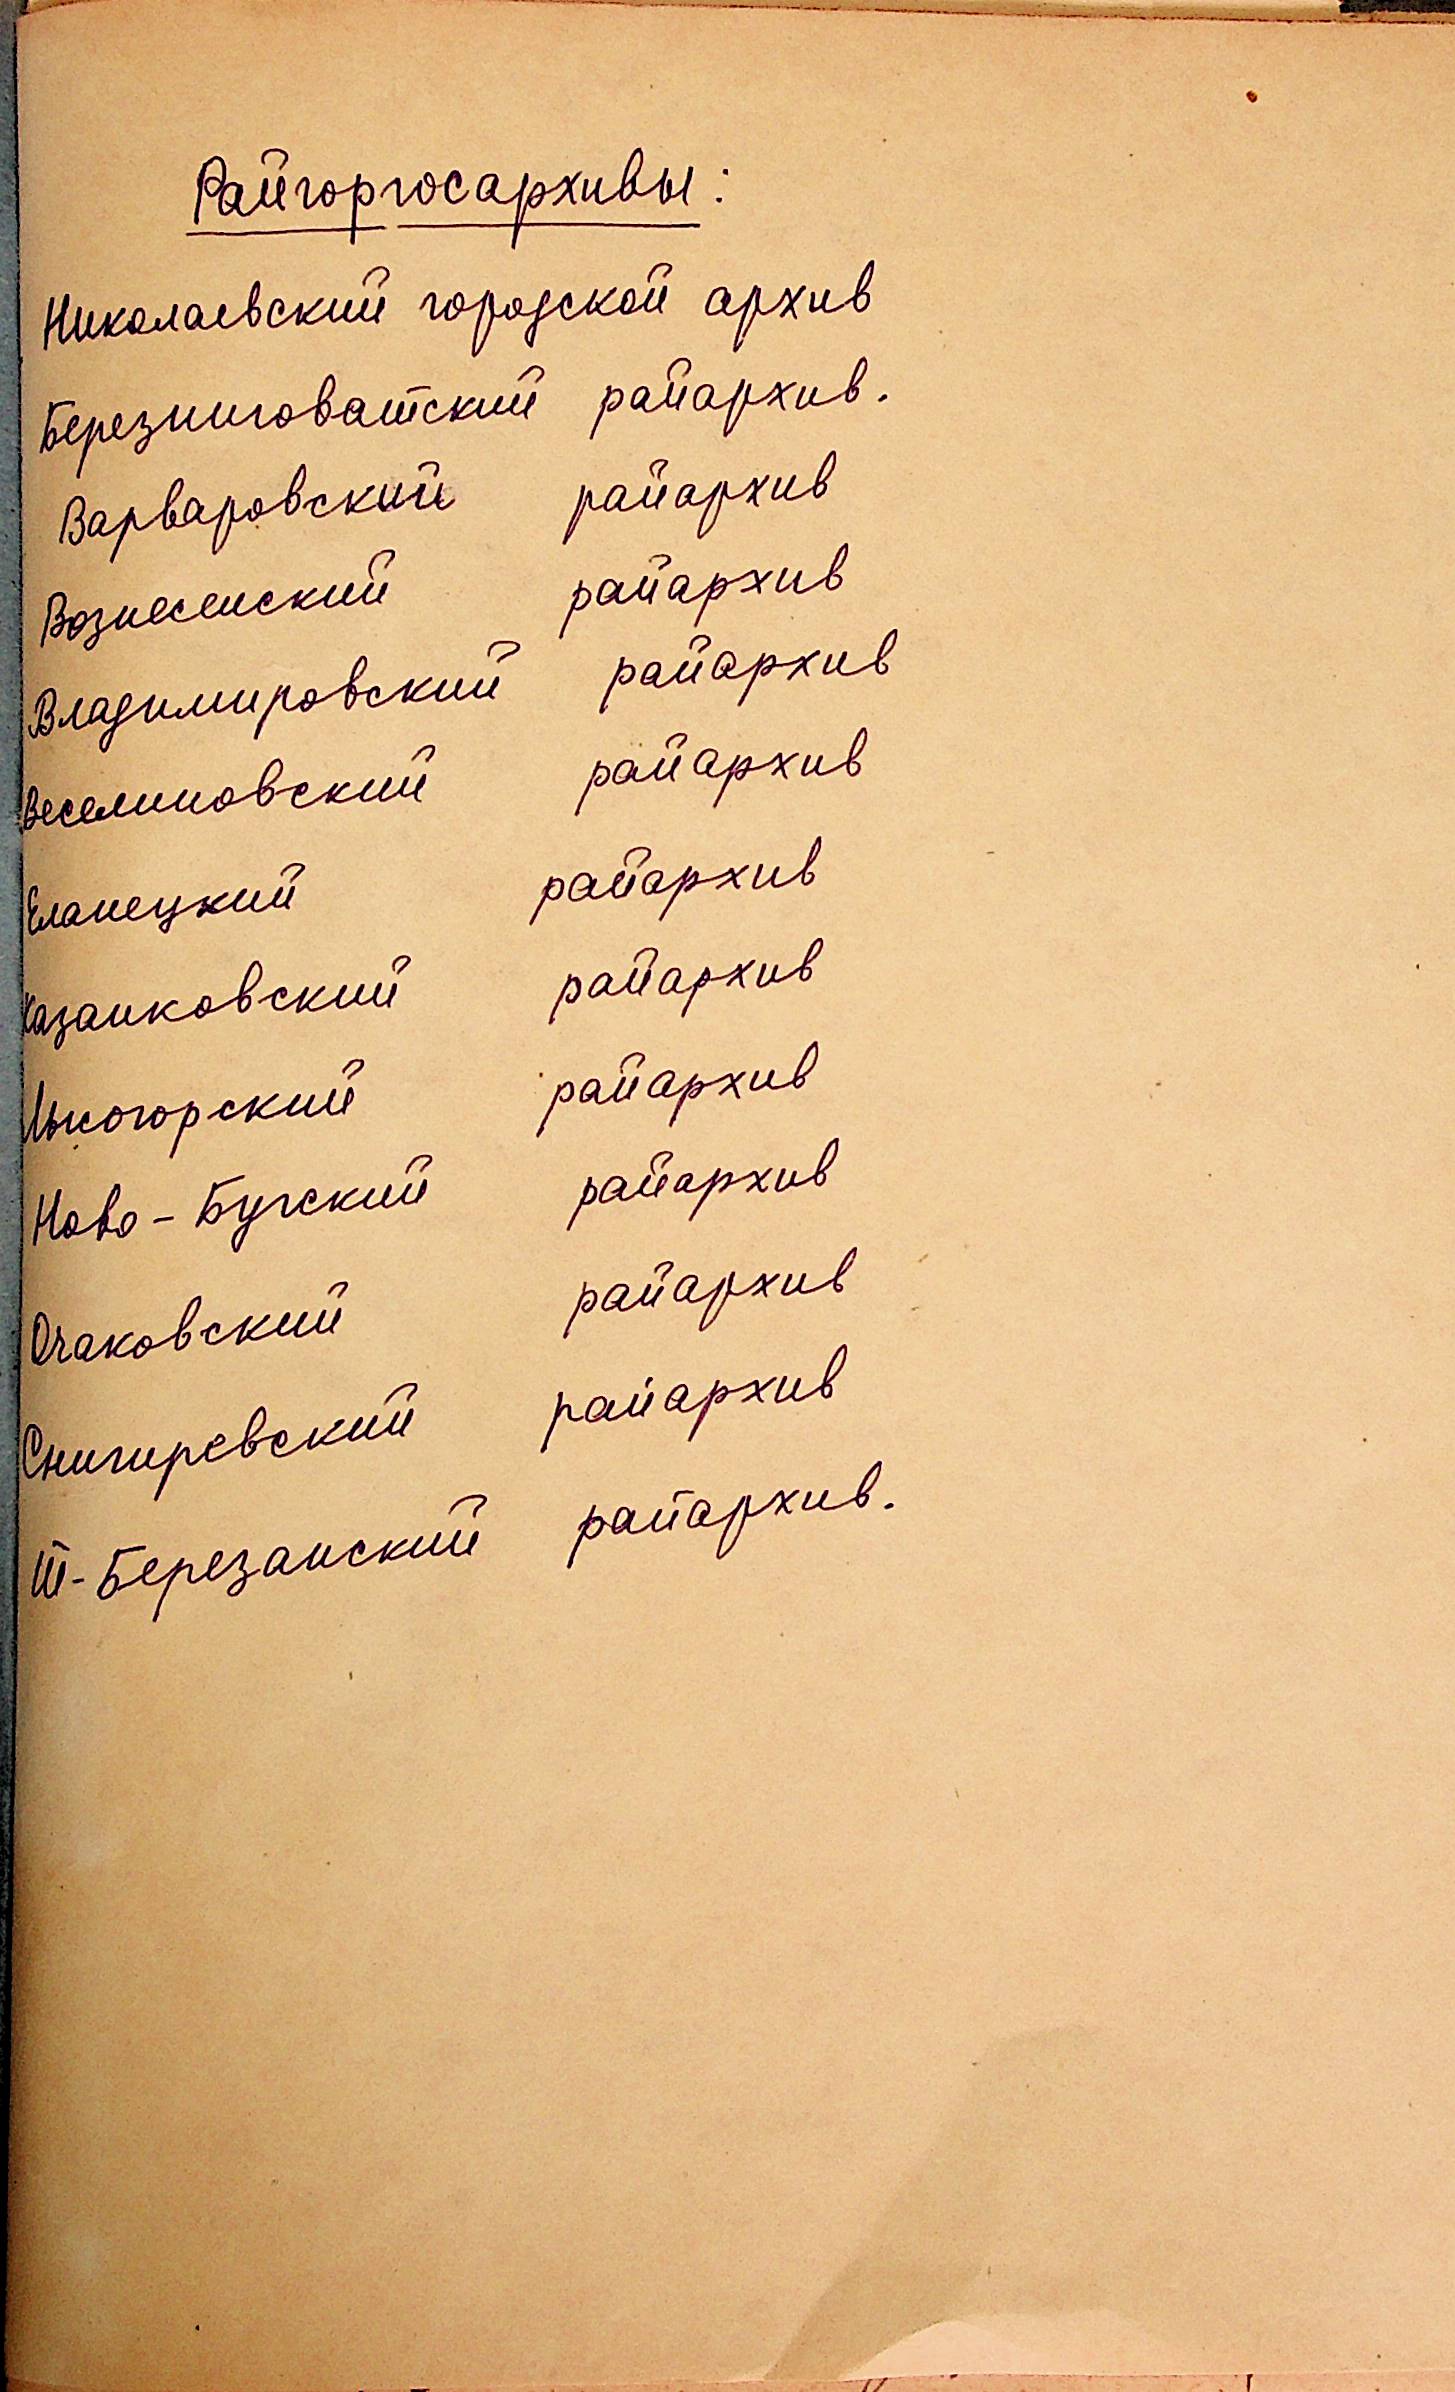 Райгоргосархивы:
Николаевский городской архив
Березниговатский райархив.
Варваровский райархив
Вознесенский райархив
Владимировский райархив
Веселиновский райархив
Еланецкий райархив
Казанковский райархив
Лысогорский райархив
Ново-Бугский райархив
Очаковский райархив
Снигиревский райархив
Т-Березанский райархив.